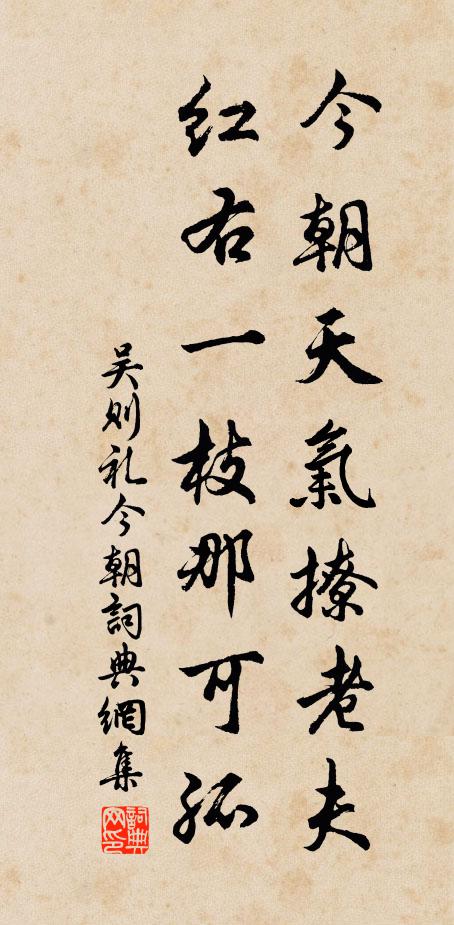 今朝天氣撩老夫
紅右一枝那可孤
吴则礼今朝詞典網集
詞典网印